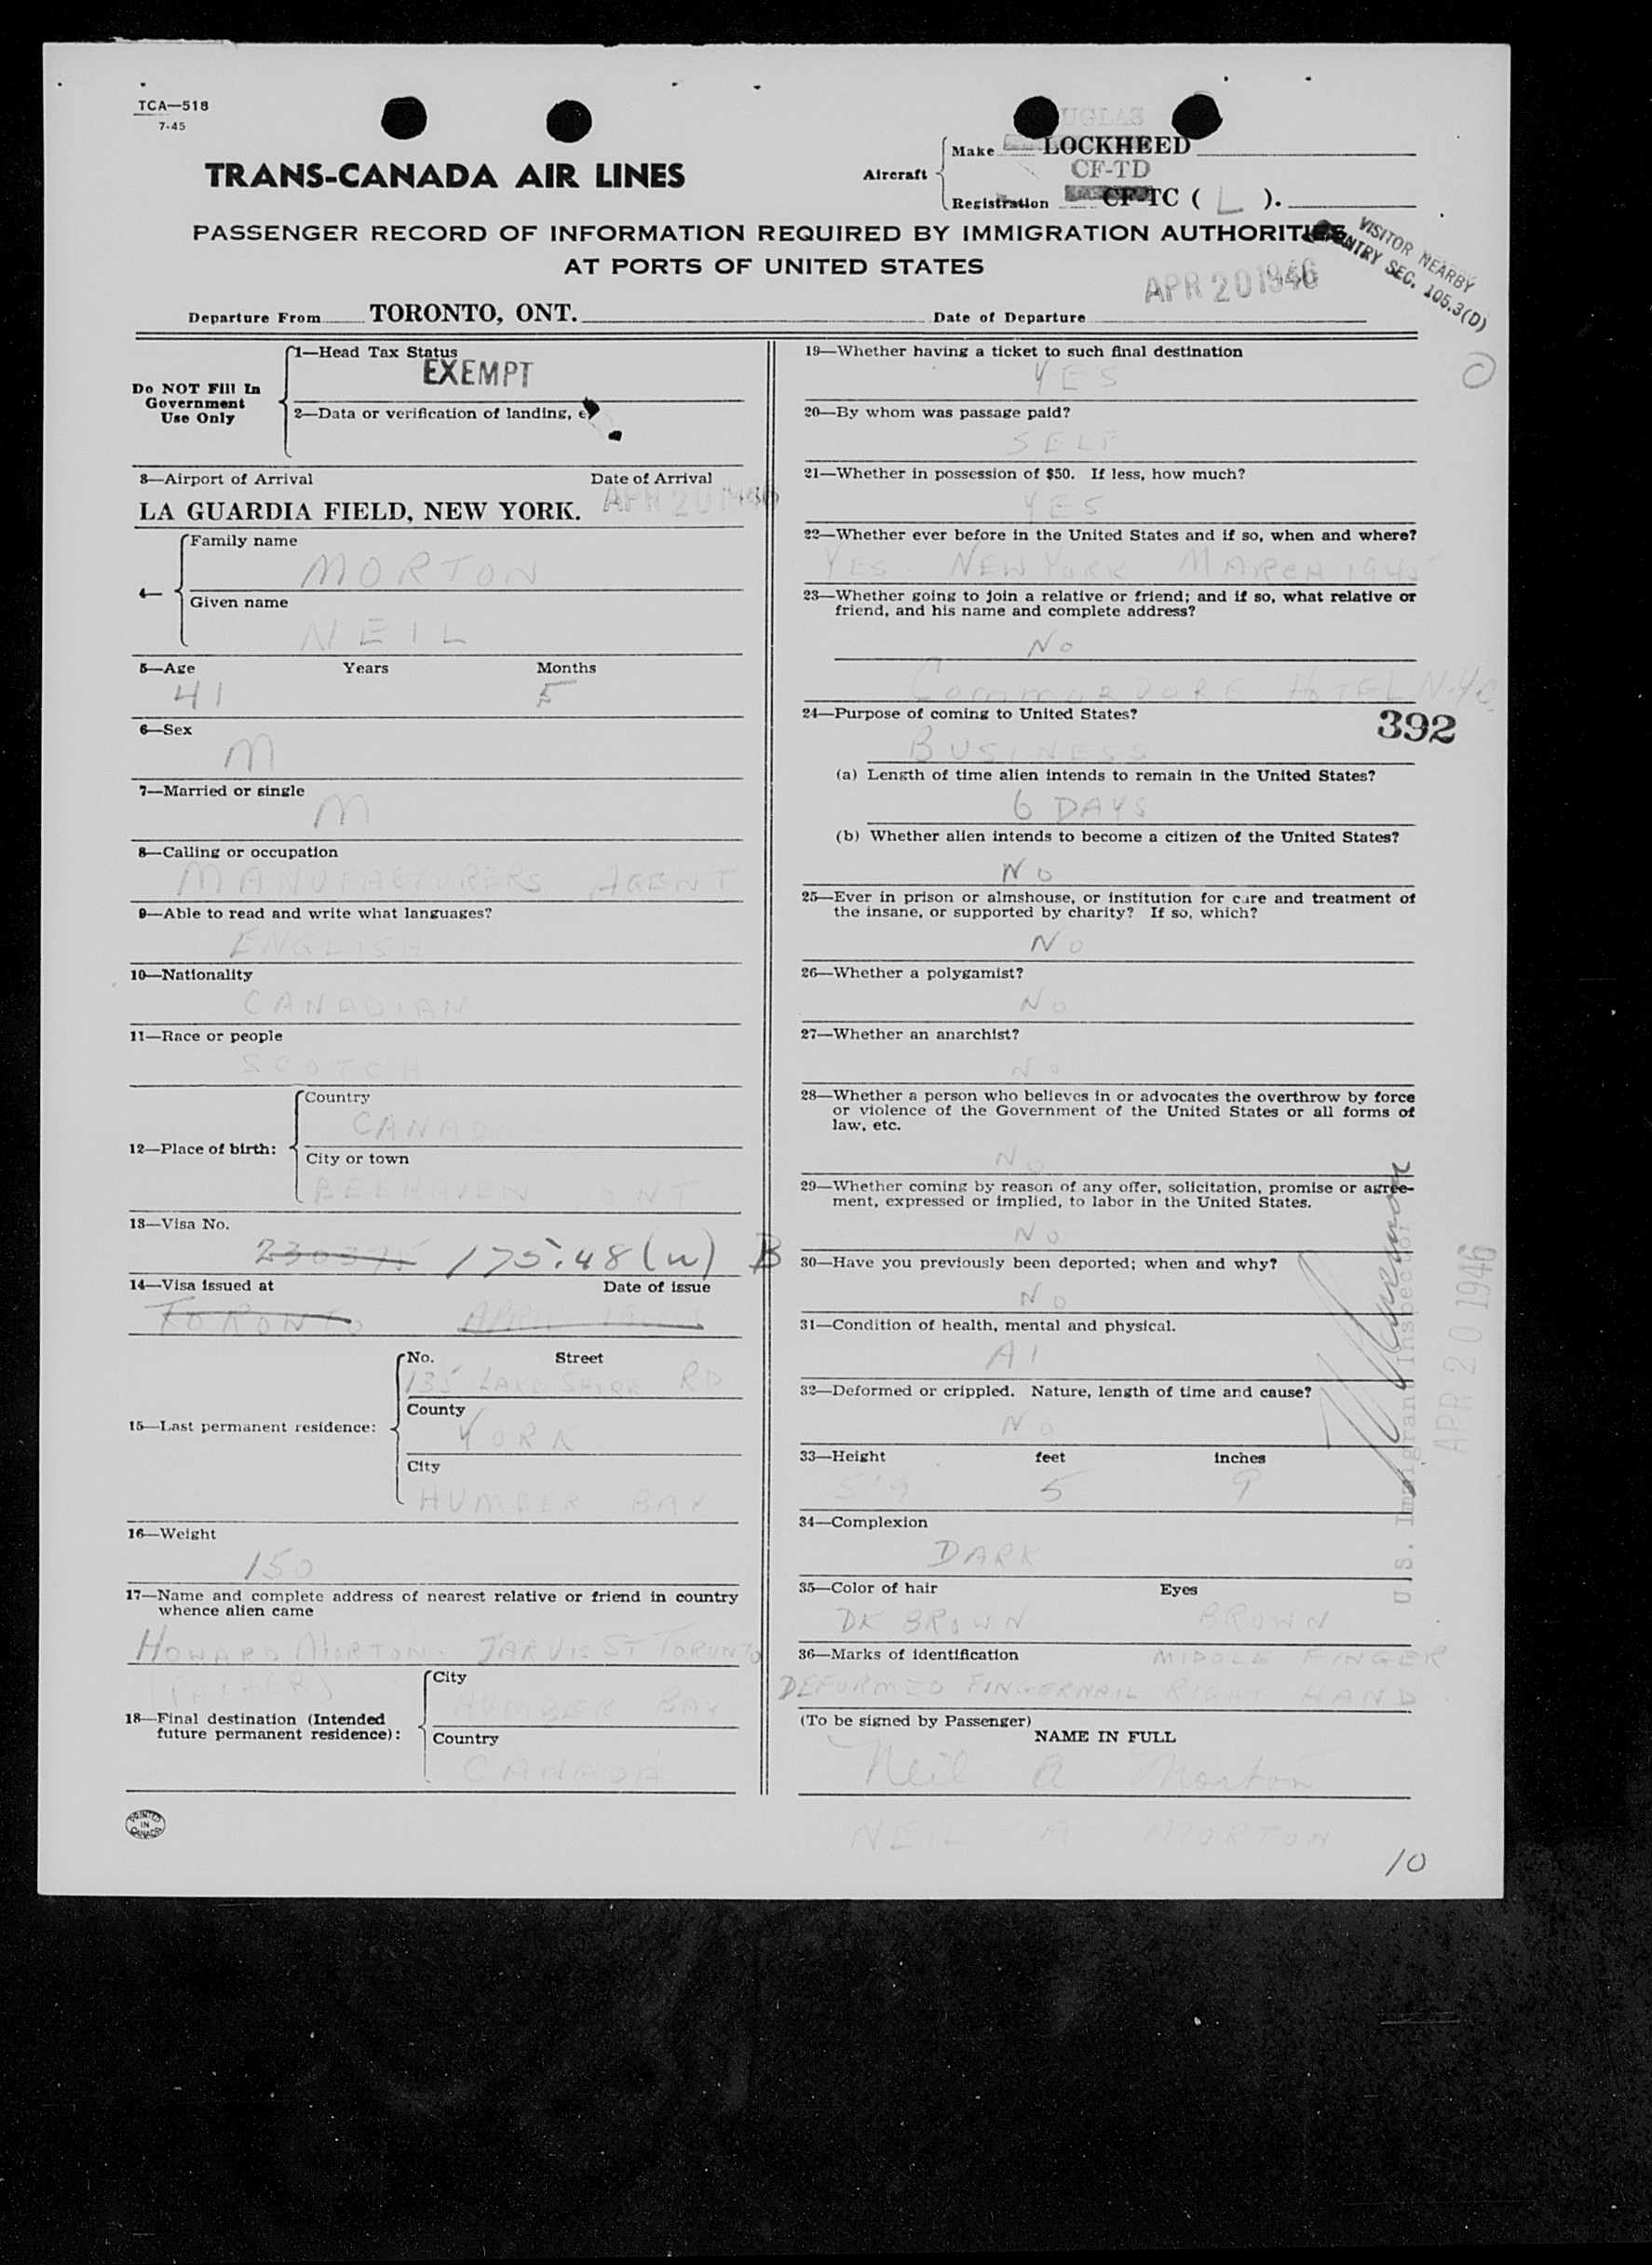 TCA—518
7-45
TRANS-CANADA AIR LINES
UGLAS
Aircraft
Make LOCKHEED
CF-TD
Registration CF-TC ( L ).
PASSENGER RECORD OF INFORMATION REQUIRED BY IMMIGRATION AUTHORITIES
AT PORTS OF UNITED STATES
VISITOR NEARBY
SEC. 105.3(D)
APR 20 1946
Departure From TORONTO, ONT. Date of Departure
Do NOT Fill In
Government
Use Only
1—Head Tax Status
EXEMPT
2—Data or verification of landing,
3—Airport of Arrival Date of Arrival
LA GUARDIA FIELD, NEW YORK. APR 20 1946
4—
Family name
MORTON
Given name
NEIL
5—Age Years Months
41 5
6—Sex
M
7—Married or single
M
8—Calling or occupation
MANUFACTURERS AGENT
9—Able to read and write what languages?
ENGLISH
10—Nationality
CANADIAN
11—Race or people
SCOTCH
12—Place of birth:
Country
CANADA
City or town
BELHAVEN ONT
13—Visa No.
230375 175.48 (w) B
14—Visa issued at Date of issue
TORONTO APRIL
15—Last permanent residence:
No. Street
135 LAKE SHORE RD
County
YORK
City
HUMBER BAY
16—Weight
150
17—Name and complete address of nearest relative or friend in country
whence alien came
HOWARD MORTON - JARVIS ST TORONTO
(FATHER)
18—Final destination (Intended
future permanent residence):
City
HUMBER BAY
Country
CANADA
PRINTED
IN
CANADA
19—Whether having a ticket to such final destination
YES
20—By whom was passage paid?
SELF
21—Whether in possession of $50. If less, how much?
YES
22—Whether ever before in the United States and if so, when and where?
YES. NEW YORK MARCH
23—Whether going to join a relative or friend; and if so, what relative or
friend, and his name and complete address?
NO
COMMODORE HOTEL N.Y.C.
24—Purpose of coming to United States?
392
BUSINESS
(a) Length of time alien intends to remain in the United States?
6 DAYS
(b) Whether alien intends to become a citizen of the United States?
NO
25—Ever in prison or almshouse, or institution for care and treatment of
the insane, or supported by charity? If so, which?
NO
26—Whether a polygamist?
NO
27—Whether an anarchist?
NO
28—Whether a person who believes in or advocates the overthrow by force
or violence of the Government of the United States or all forms of
law, etc.
NO
29—Whether coming by reason of any offer, solicitation, promise or agree-
ment, expressed or implied, to labor in the United States.
NO
30—Have you previously been deported; when and why?
NO
31—Condition of health, mental and physical.
A1
32—Deformed or crippled. Nature, length of time and cause?
NO
33—Height feet inches
5'9 5 9
34—Complexion
DARK
35—Color of hair Eyes
DK BROWN BROWN
36—Marks of identification MIDDLE FINGER
DEFORMED FINGERNAIL RIGHT HAND
(To be signed by Passenger)
NAME IN FULL
Neil A Morton
NEIL A MORTON
U.S. Immigrant Inspector
APR 20 1946
10